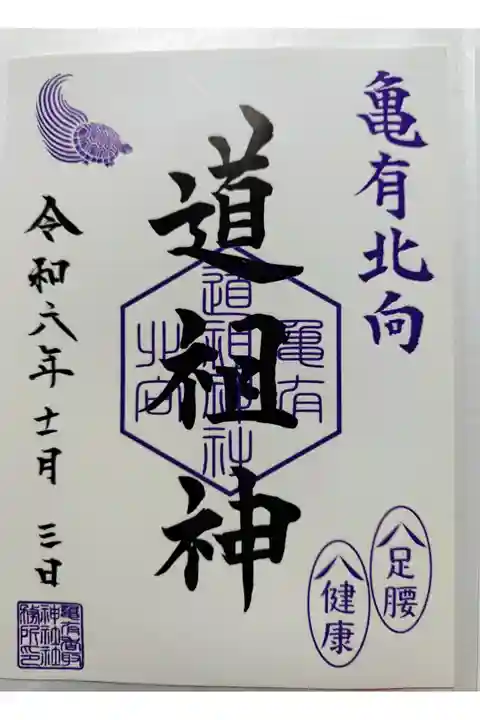 亀有北向
八足腰
八健康
道祖神
亀有
道祖神社
北向
令和六年十一月三日
亀有香取
神社社
務所印